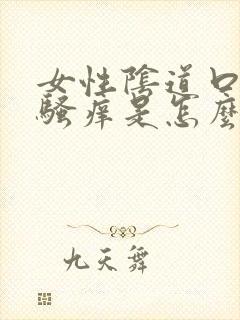 女性陰道口
騷痒是怎麼
九天舞